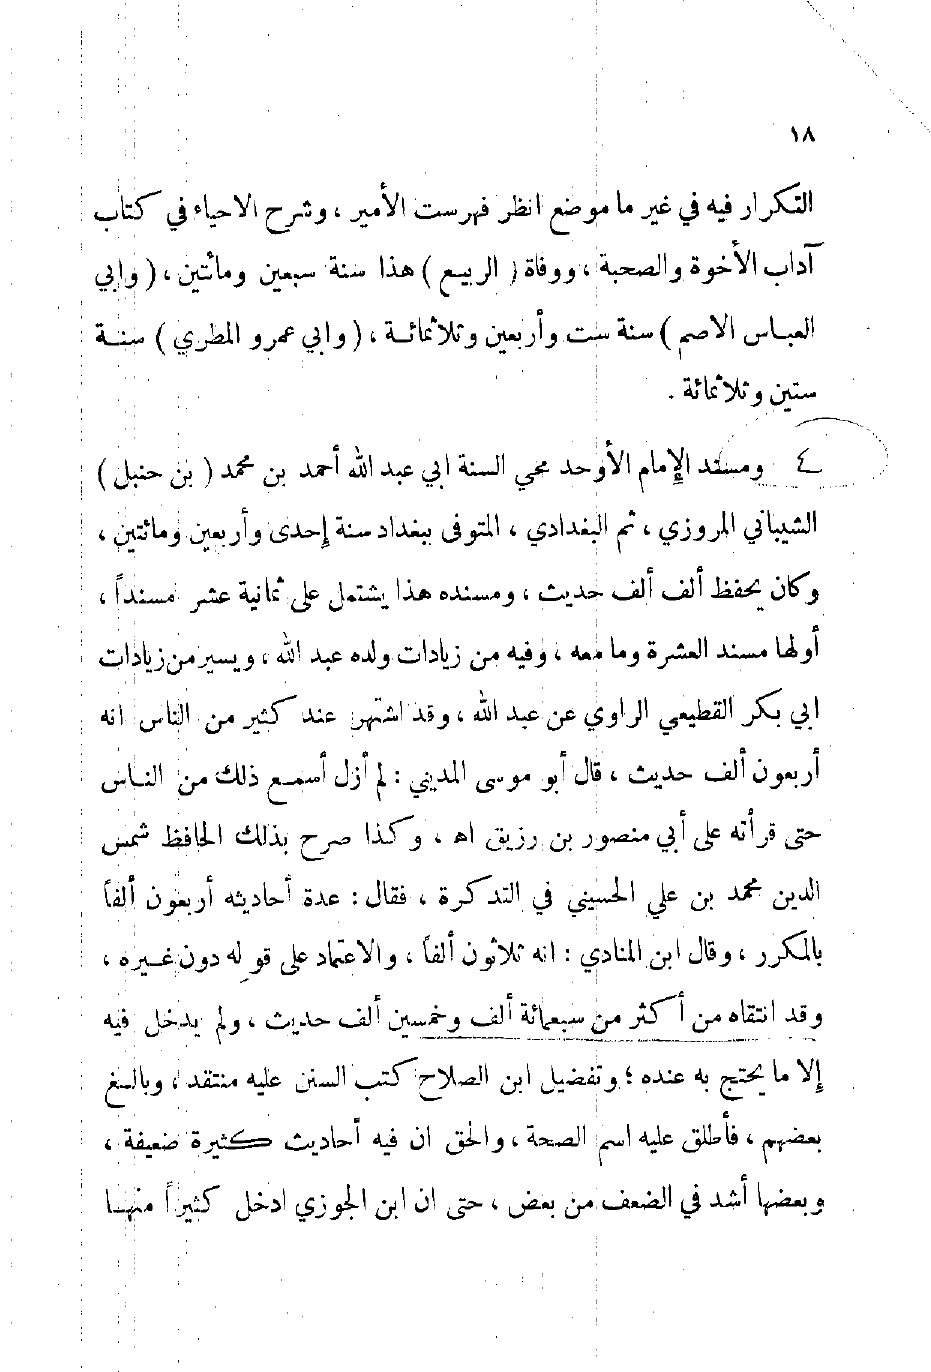 ١٨
التكرار فيه في غير ما موضع انظر فهرست الأمير ، وشرح الاحياء في كتاب
آداب الأخوة والصحبة ، ووفاة ( الربيع ) هذا سنة سبعين ومائتين ، ( وابي
العباس الاصم ) سنة ست وأربعين وثلاثمائة ، ( وابي عمرو المطري ) سنة
ستين وثلاثمائة .
٤ ومسند الإمام الأوحد محي السنة ابي عبد الله أحمد بن محمد ( بن حنبل )
الشيباني المروزي ، ثم البغدادي ، المتوفى ببغداد سنة إحدى وأربعين ومائتين ،
وكان يحفظ ألف ألف حديث ، ومسنده هذا يشتمل على ثمانية عشر مسنداً ،
أولها مسند العشرة وما معه ، وفيه من زيادات ولده عبد الله ، ويسير من زيادات
ابي بكر القطيعي الراوي عن عبد الله ، وقد اشتهر عند كثير من الناس انه
أربعون ألف حديث ، قال أبو موسى المديني : لم أزل أسمع ذلك من الناس
حتى قرأته على أبي منصور بن رزيق اه ، وكذا صرح بذلك الحافظ شمس
الدين محمد بن علي الحسيني في التذكرة ، فقال : عدة أحاديثه أربعون ألفاً
بالمكرر ، وقال ابن المنادي : انه ثلاثون ألفاً ، والاعتماد على قوله دون غيره ،
وقد انتقاه من أكثر من سبعمائة ألف وخمسين ألف حديث ، ولم يدخل فيه
إلا ما يحتج به عنده ؛ وتفضيل ابن الصلاح كتب السنن عليه منتقد ، وبالغ
بعضهم ، فأطلق عليه اسم الصحة ، والحق ان فيه أحاديث كثيرة ضعيفة ،
وبعضها أشد في الضعف من بعض ، حتى ان ابن الجوزي ادخل كثيراً منها